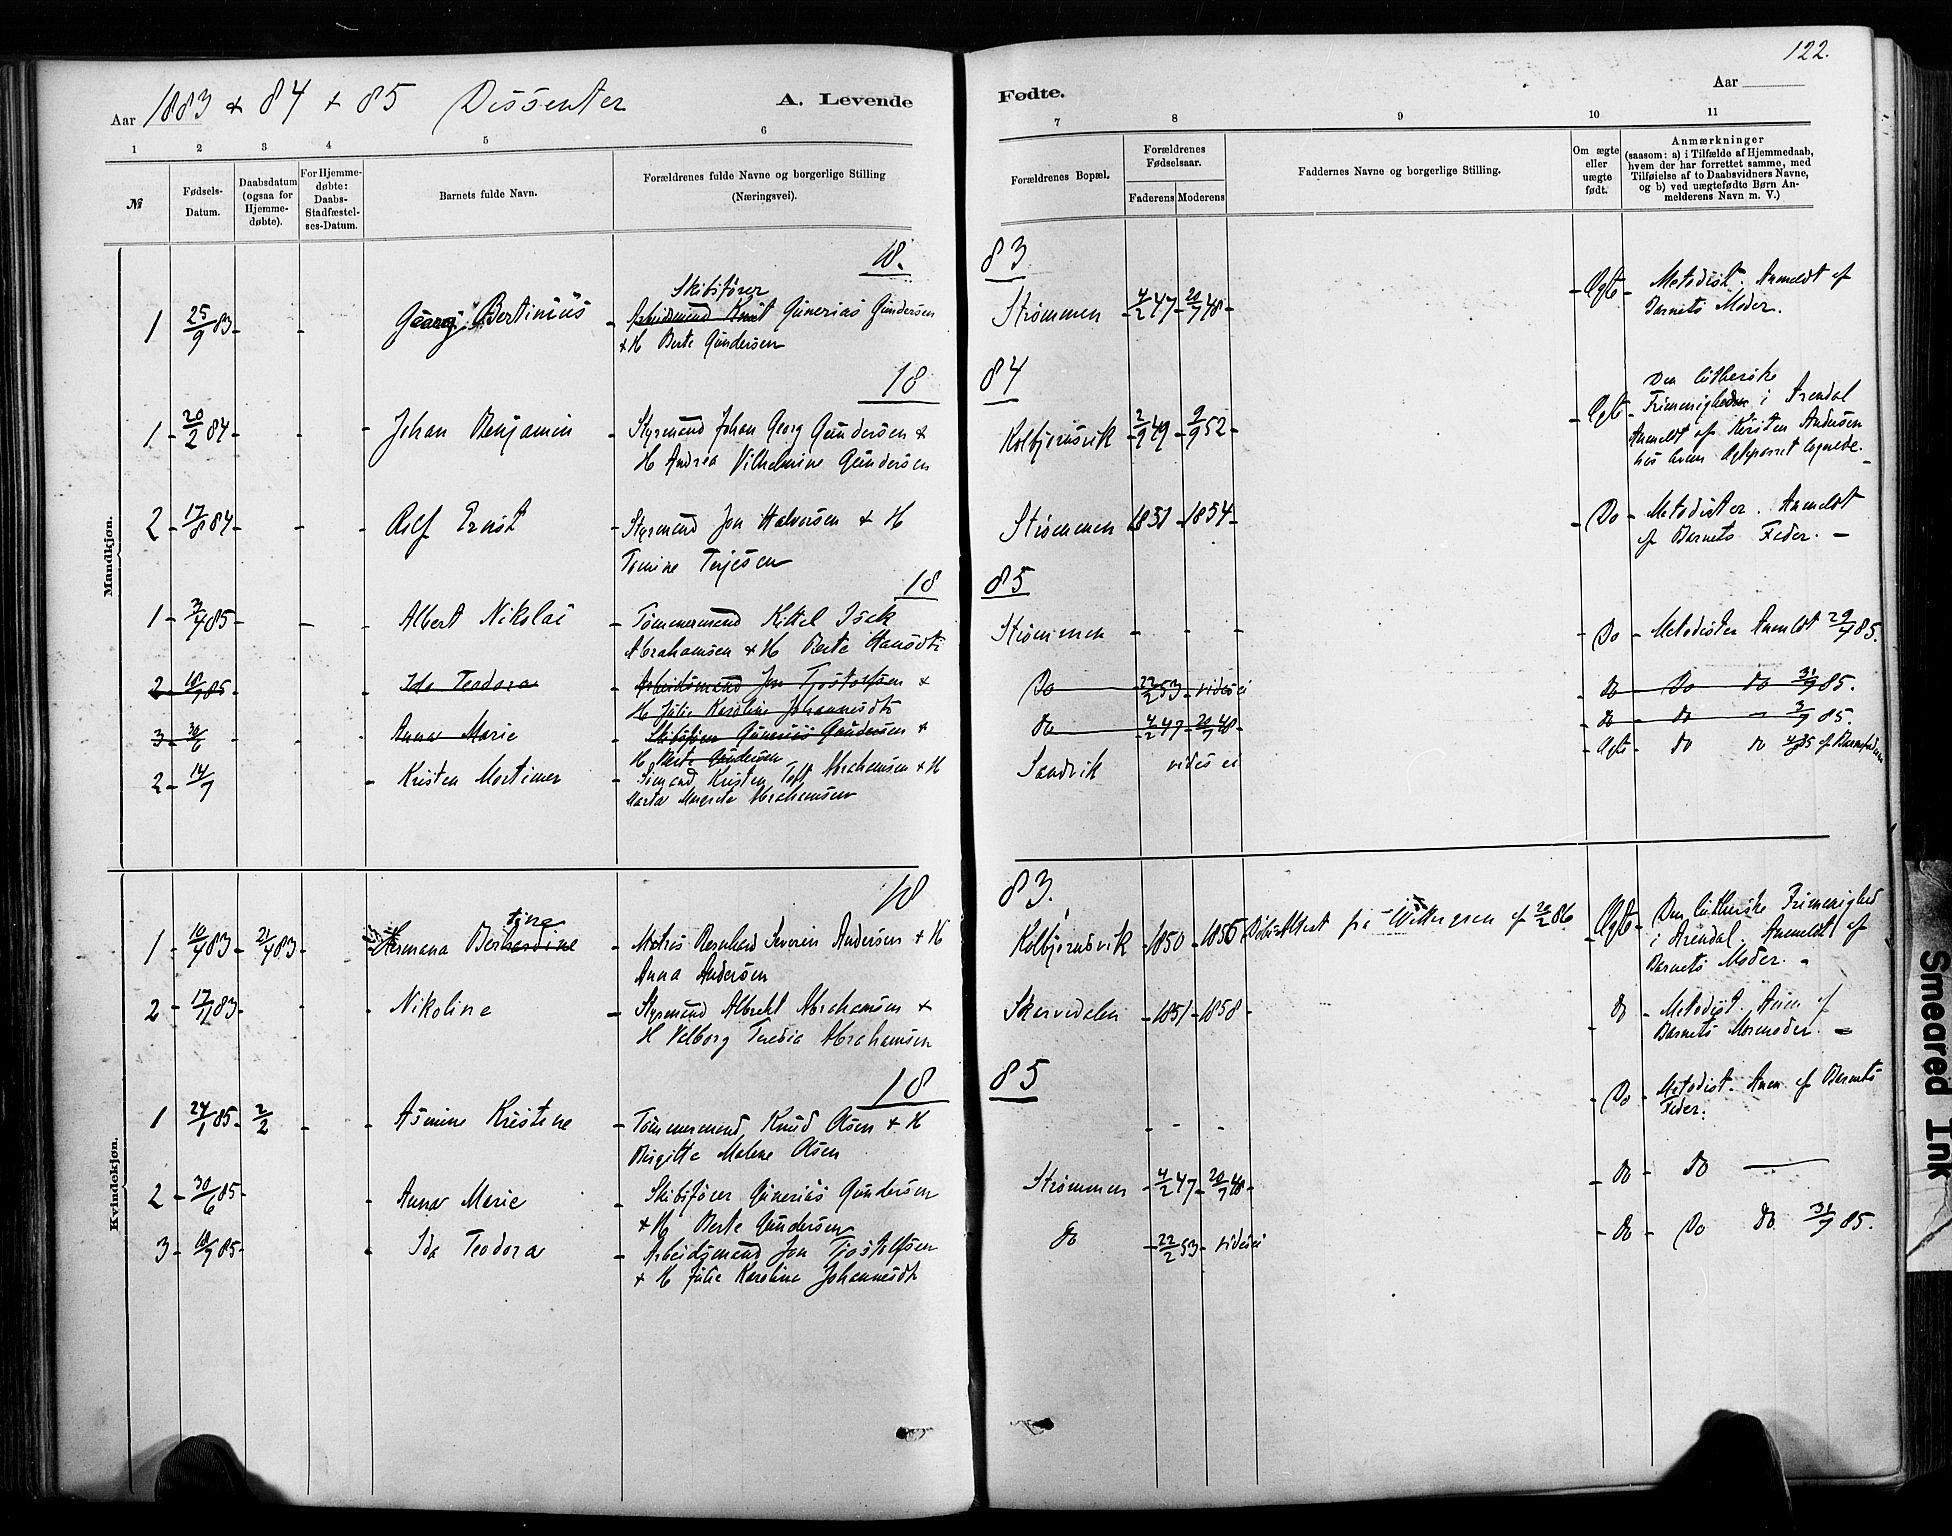 122.
Aar 1883 + 84 + 85 Dissenter
A. Levende
Fødte.
Aar
1 2 3 4 5 6
7 8 9 10 11
№
Fødsels-
Datum.
Daabsdatum
(ogsaa for
Hjemme-
døbte).
For Hjemme-
døbte:
Daabs-
Stadfæstel-
ses-Datum.
Barnets fulde Navn.
Forældrenes fulde Navne og borgerlige Stilling
(Næringsvei).
Forældrenes Bopæl.
Forældrenes
Fødselsaar.
Faderens Moderens
Faddernes Navne og borgerlige Stilling.
Om ægte
eller
uægte
født.
Anmærkninger
(saasom: a) i Tilfælde af Hjemmedaab,
hvem der har forrettet samme, med
Tilføielse af to Daabsvidners Navne,
og b) ved uægtefødte Børn An-
melderens Navn m. V.)
Mandkjøn.
18. 83
Skibsfører
1 25/9 83 Georg Bertinius - Arbeidsmand Knut Gunerius Gundersen
+ H Berte Gundersen
Strømmen 4/2 47 - 20/7 48 - Ægte - Metodist. Anmeldt af
Barnets Moder.
18 84
1 - 20/2 84 - Johan Benjamin - Styrmand Johan Georg Gundersen +
H Andrea Vilhelmine Gundersen
Kolbjørnsvik 2/9 49 - 9/9 52 - Ægte - Den lutherske
Frimenighed i Arendal
Anmeldt af Kirsten Andersen
hos hvem Ægteparret logerede.
2 - 17/8 84 - Rolf Ernst - Styrmand Jon Halvorsen + H
Tomine Terjesen
Strømmen 1851 - 1854 - Do - Metodister. Anmeldt
af Barnets Fader. -
18 85
1 - 3/4 85 - Albert Nikolai - Tømmermand Kittel Isak
Abrahamsen + H Berte Hansdtr
Strømmen - - - Do - Metodister Anmeldt 29/4 85.
2 - 18/7 85 Ida Teodora - Arbeidsmand Jon Tjostolfsen +
H Julie Karoline Johannesdtr
Do 22/2 53 - vides ei do - Do do 31/7 85.
3 - 30/6 - Anna Marie - Skibsfører Gunerius Gundersen +
H Berte Gundersen
do 4/2 47 - 20/7 48 do - do - 3/7 85.
2 - 14/7 - Kristen Mortimer - Sømand Kristen Toft Abrahamsen + H
Marta Margrete Abrahamsen
Sandvik vides ei Ægte do do
Kvindekjøn.
18 83.
tine
1 - 10/4 83 - 21/4 83 - Hermana Bernhardine - Matros Bernhard Severin Andersen + H
Anna Andersen
Kolbjørnsvik - 1850 - 1856 af 20/2 86 Ægte - Den lutherske Frimenighed
i Arendal. Anmeldt af
Barnets Moder.
2 - 17/7 83 - Nikoline - Styrmand Albrekt Abrahamsen +
H Valborg Teresia Abrahamsen
Skarvedalen - 1851 - 1858 - do - Metodist. Anm. af
Barnets Mormoder.
18 85
1 24/1 85 - 2/2 - Asmine Kristine - Tømmermand Knud Olsen + H
Birgitte Malene Olsen
- - - Do - Metodist. Anm af Barnets
Fader.
2 - 30/6 85 - Anna Marie - Skibsfører Gunerius Gundersen
+ H Berte Gundersen
Strømmen - 4/2 47 - 20/7 48 - do - do
3 - 18/7 85 - Ida Teodora - Arbeidsmand Jon Tjostolfsen
+ H Julie Karoline Johannesdt
do - 22/2 53 - vides ei - do - Do do 31/7 85.
Smeared Ink